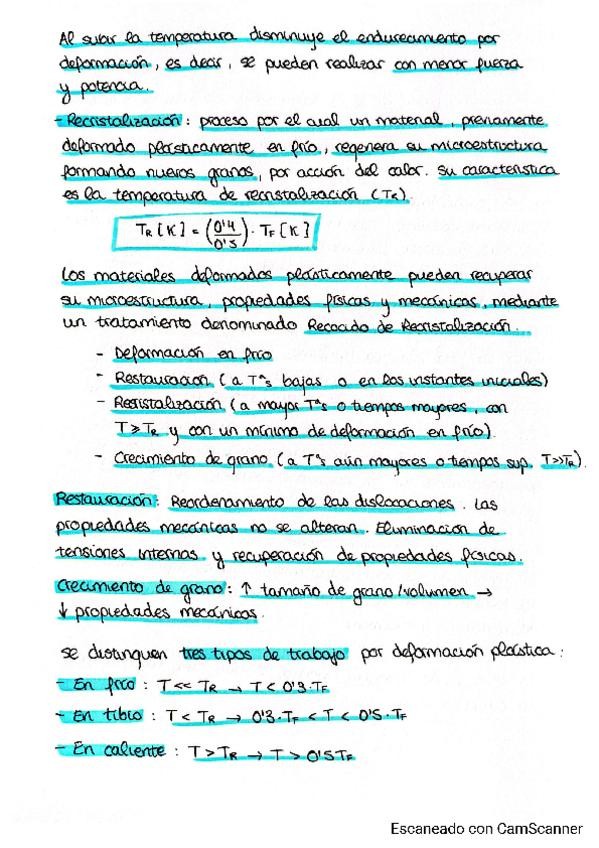 Al subir la temperatura disminuye el endurecimiento por
deformación, es decir, se pueden realizar con menor fuerza
y potencia.
- Recristalización: proceso por el cual un material, previamente
deformado plásticamente en frío, regenera su microestructura
formando nuevos granos, por acción del calor. Su característica
es la temperatura de recristalización (TR).
TR [K] = (0'4/0'5) · TF [K]
Los materiales deformados plásticamente pueden recuperar
su microestructura, propiedades físicas y mecánicas, mediante
un tratamiento denominado Recocido de Recristalización.
- Deformación en frío
- Restauración (a Tªs bajas o en los instantes iniciales)
- Resistalización (a mayor Tªs o tiempos mayores, con
T≥TR y con un mínimo de deformación en frío).
- Crecimiento de grano (a Tªs aún mayores o tiempos sup. T>>TR).
Restauración: Reordenamiento de las dislocaciones. Las
propiedades mecánicas no se alteran. Eliminación de
tensiones internas y recuperación de propiedades físicas.
Crecimiento de grano: ↑ tamaño de grano/volumen →
↓ propiedades mecánicas.
Se distinguen tres tipos de trabajo por deformación plástica:
- En frío: T << TR → T < 0'3·TF
- En tibio: T < TR → 0'3·TF < T < 0'5·TF
- En caliente: T > TR → T > 0'5TF
Escaneado con CamScanner